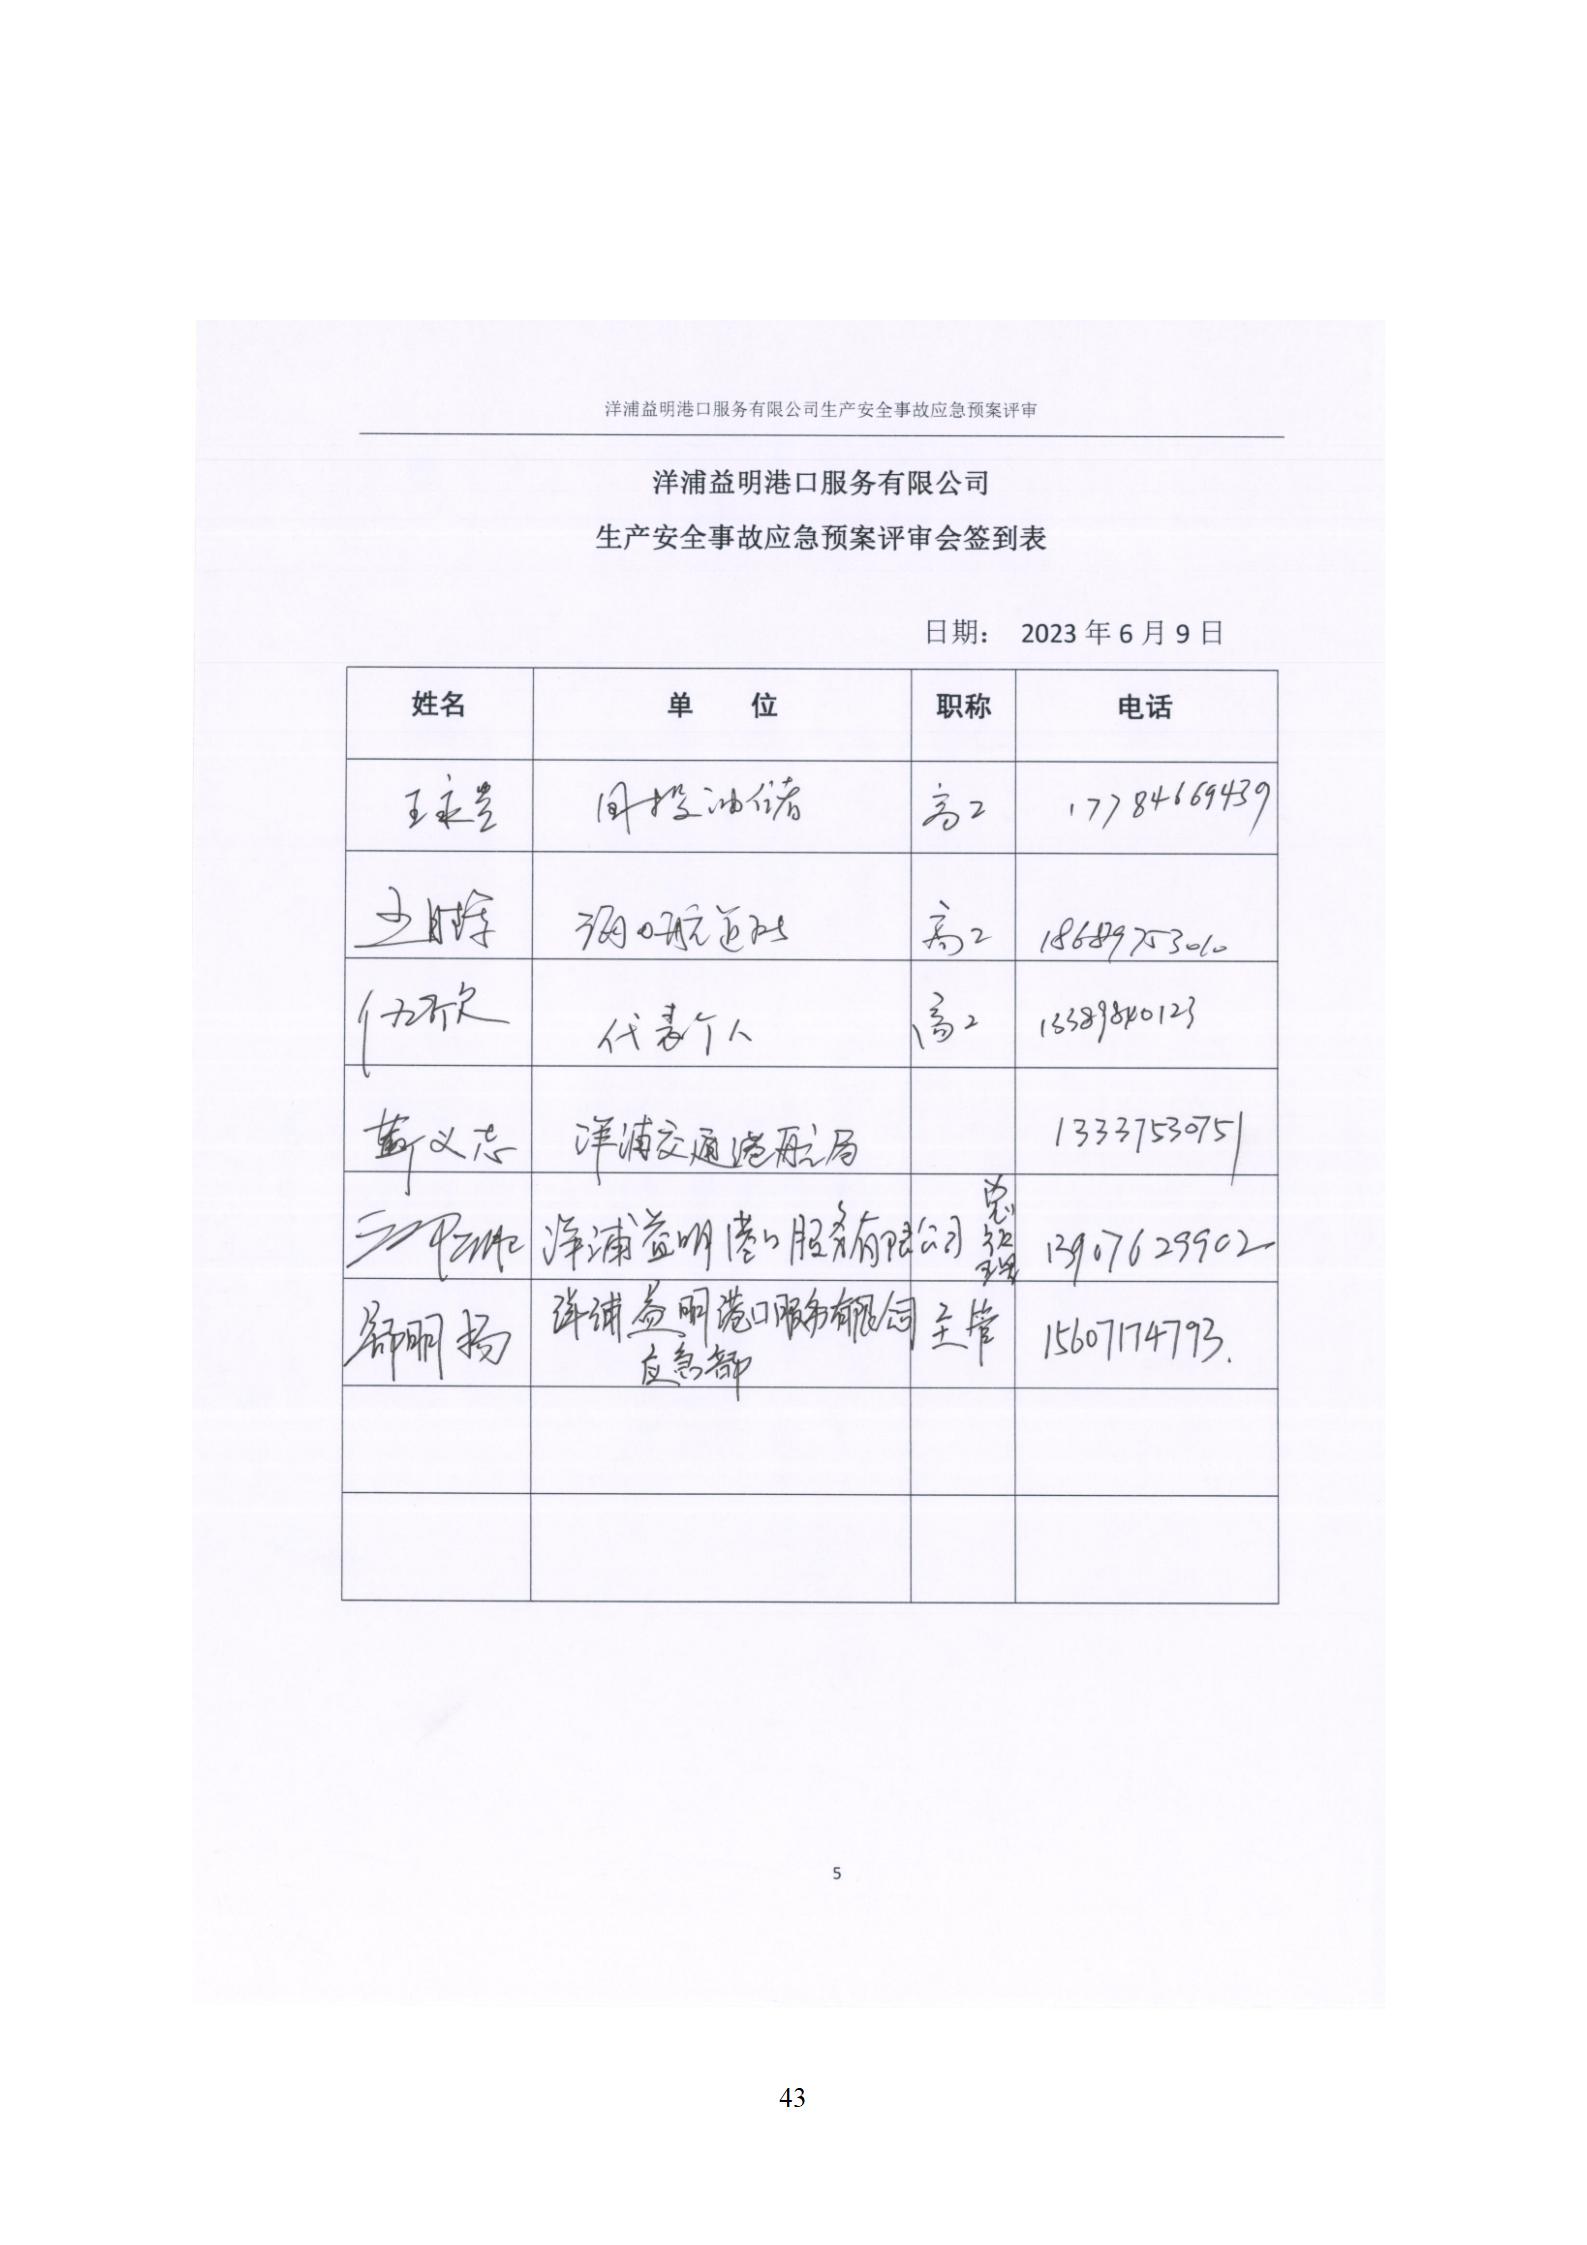 洋浦益明港口服务有限公司生产安全事故应急预案评审
洋浦益明港口服务有限公司
生产安全事故应急预案评审会签到表
日期： 2023 年 6 月 9 日
姓名 单 位 职称 电话
王永贵 国投油储 高工 17784669439
海口航道处 高工 18689753010
伍欣 代表个人 高工 13389840123
靳义志 洋浦交通港航局 13337530751
洋浦益明港口服务有限公司 总经理 13907629902
舒明扬 洋浦益明港口服务有限公司 主管 15607174793.
应急部
5
43